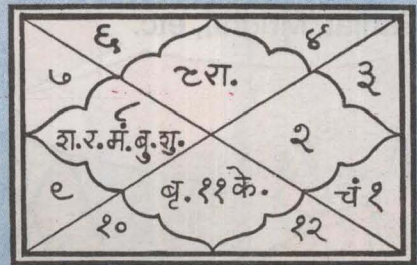 ६ ४
७ ५रा. ३
८
श.र.मं.बु.शु. २
९ बृ. ११ के. चं १
१० १२